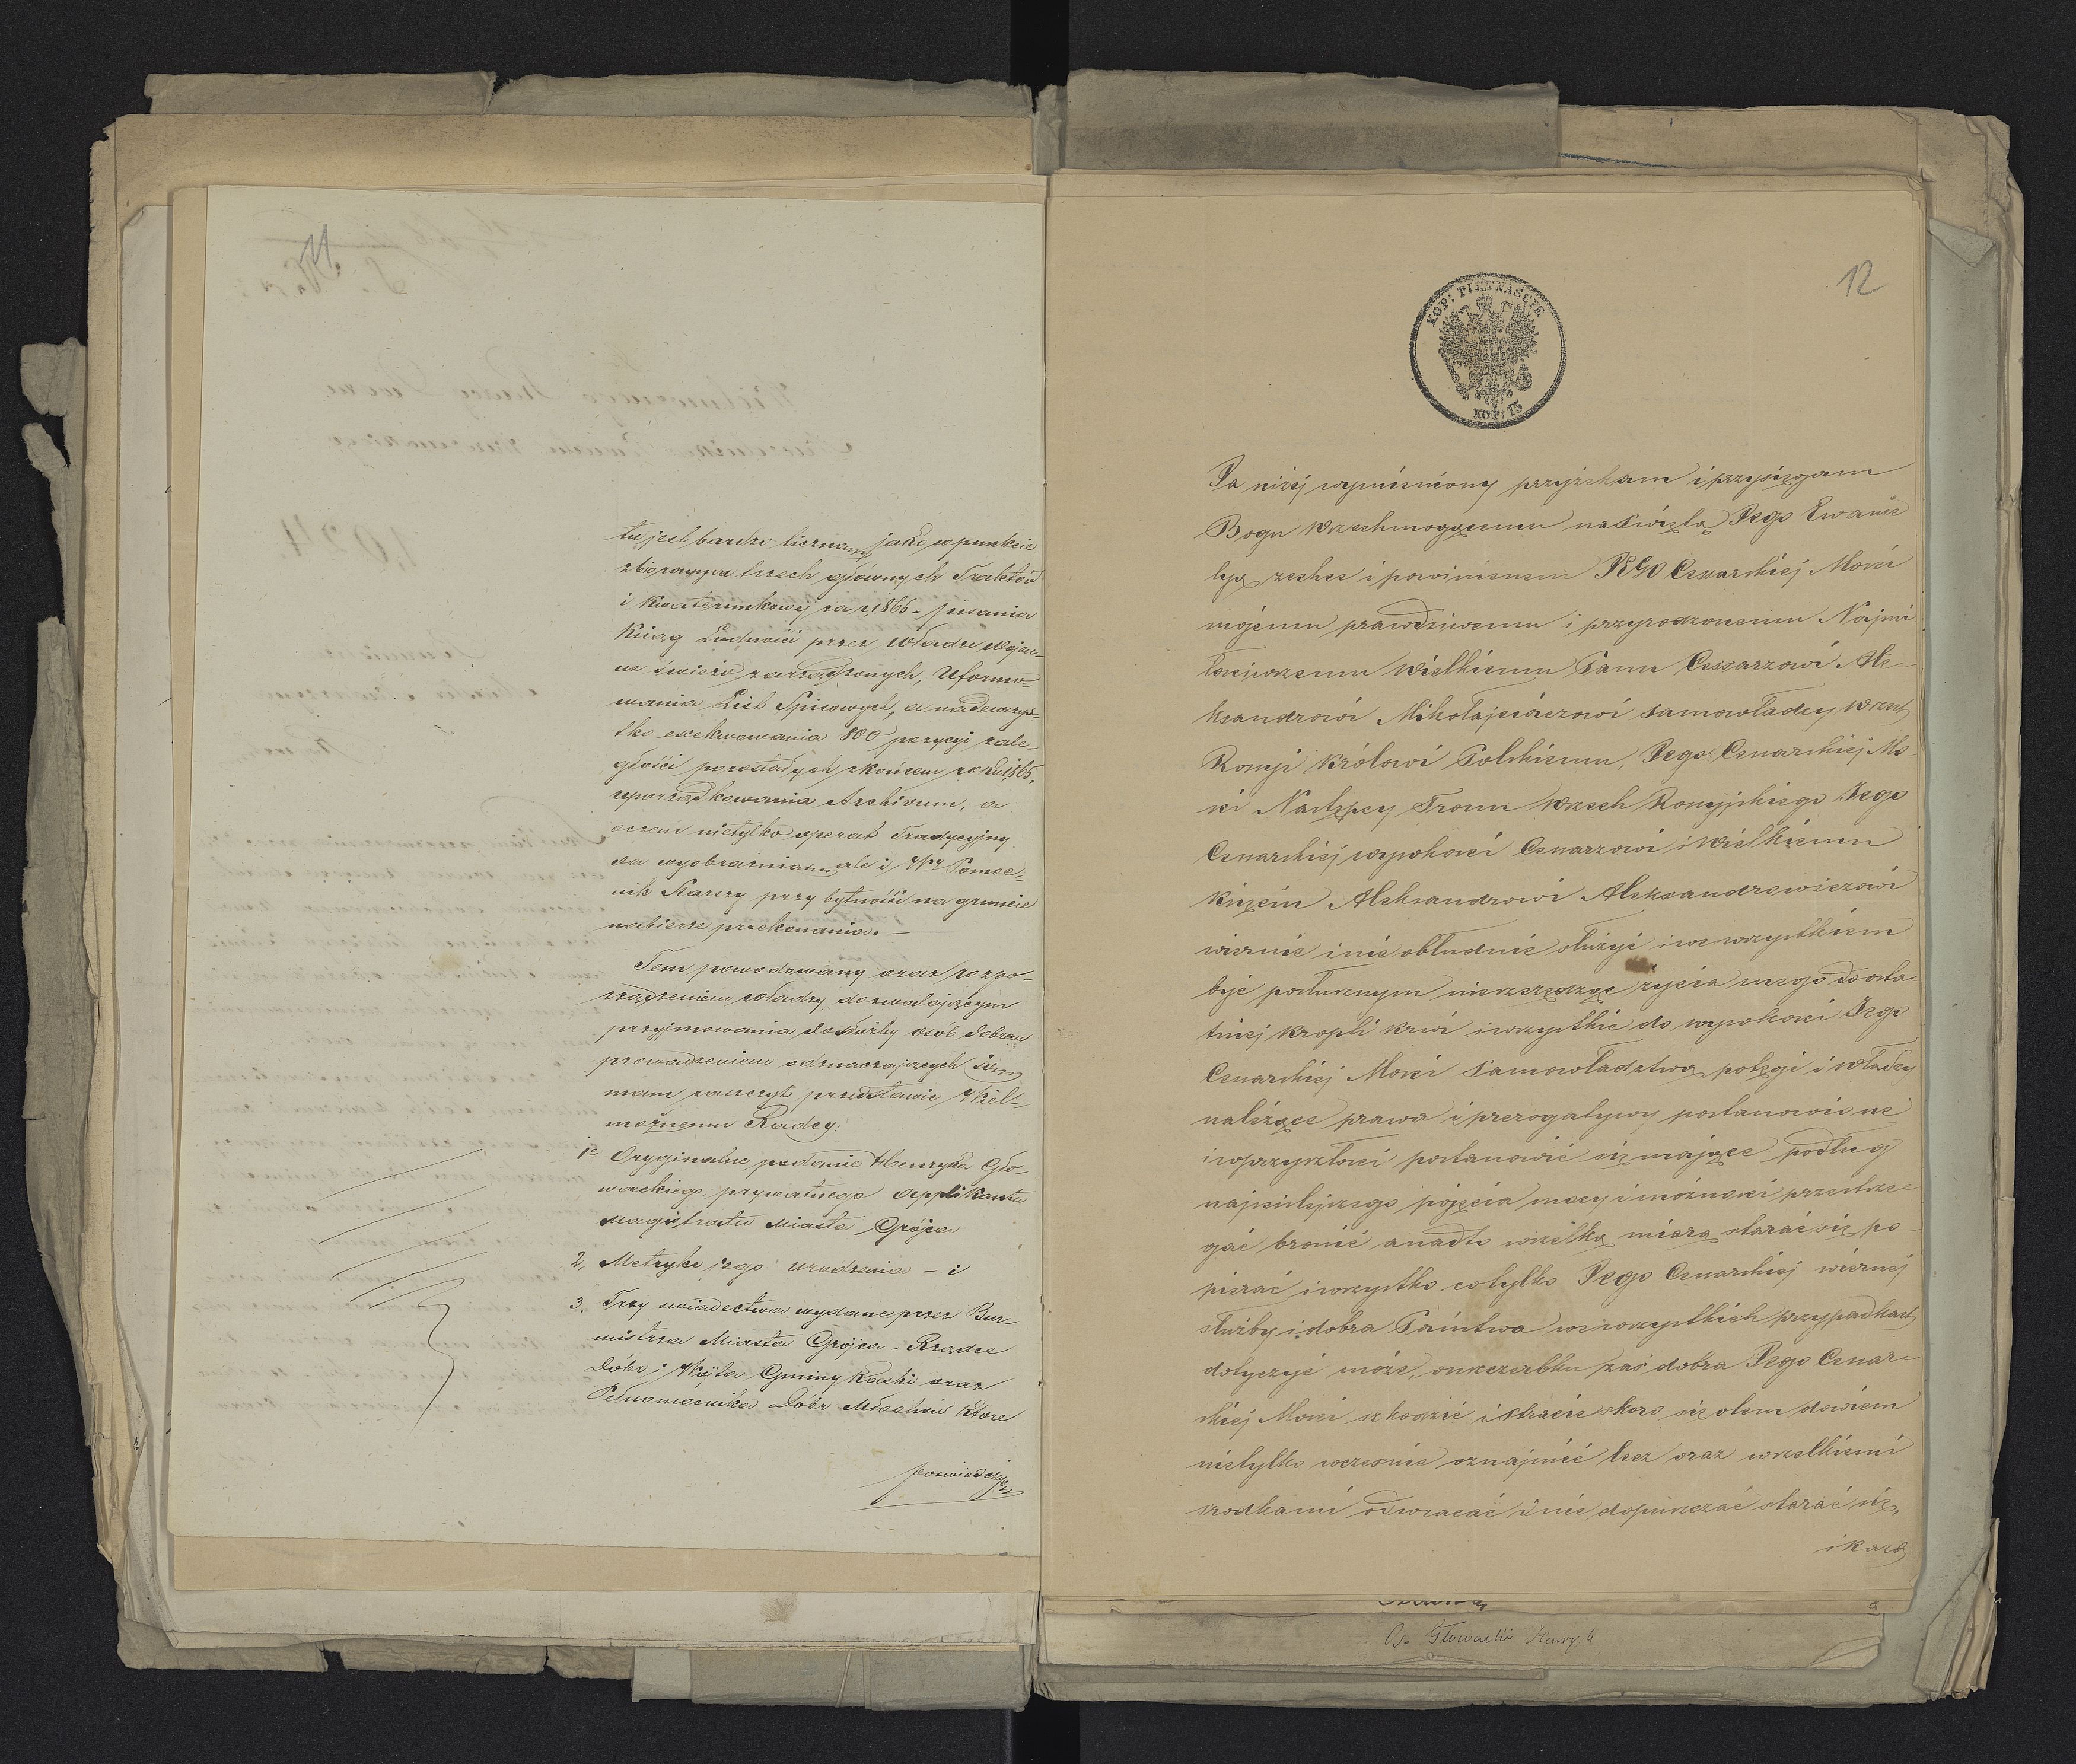 11
tu jest bardzo licznem, jako w punkcie
zbiorowym trzech głównych Traktów
i Kwaterunkowej za r. 1866 - pisania
Ksiąg Ludności przez Władze wojen=
ne świeżo zarządzonych, Uformo=
wania List Spisowych, a nadewszys=
tko exekwowania 800 pozycji zale=
głości pozostałych z końcem roku 1865,
uporządkowania Archivum, o
czem nietylko operat Tradycyjny
da wyobrażenie, ale i Wny Pomoc=
nik Starszy przy bytności na gruncie
nabierze przekonania. —
Tem powodowany oraz rozpo=
rządzeniem władzy dozwalającym
przyjmowania do służby osób dobrem
prowadzeniem odznaczających się,
mam zaszczyt przedstawić Wiel=
możnemu Radcy:
1e Oryginalne podanie Henryka Gło=
wackiego prywatnego applikanta
Magistratu Miasta Grójca
2, Metrykę jego urodzenia - i
3. Trzy świadectwa wydane przez Bur=
mistrza Miasta Grójca - Rządcę
Dóbr i Wójta Gminy Kaski oraz
Pełnomocnika Dóbr Młochów które
poświadczają
12
KOP: PIĘTNAŚCIE
KOP: 15
Ja niżej wymieniony przyrzekam i przysięgam
Bogu Wszechmogącemu na Świętą Jego Ewanie
lyą zechcę i powinienem JEGO Cesarskiej Mości
mojemu prawdziwemu i przyrodzonemu Najmi
łościwszemu Wielkiemu Panu Cesarzowi Ale
ksandrowi Mikołajewiczowi samowładcy wszech
Rossyi Królowi Polskiemu, Jego Cesarskiej Mo
ści Następcy Tronu Wszech Rossyjskiego Jego
Cesarskiej wysokości Cesarzowi i Wielkiemu
Księciu Aleksandrowi Aleksandrowiczowi
wiernie i nie obłudnie służyć i we wszystkiem
być posłusznym nieszczędząc życia mego do osta
tniej kropli krwi i wszystkie do wysokości Jego
Cesarskiej Mości samowładztwa potęgi i władzy
należące prawa i prerogatywy postanowione
i w przyszłości postanowić się mające podług
najściślejszego pojęcia mocy i możności przestrze
gać bronić a nadto wszelką miarą starać się po
pierać i wszystko co tylko Jego Cesarskiej wiernej
służby i dobra Państwa we wszystkich przypadkach
dotyczyć może, o uszczerbku zaś dobra Jego Cesar
skiej Mości szkodzie i stracie skoro się o tem dowiem
nietylko wcześnie oznajmić lecz oraz wszelkiemi
srodkami odwracać i nie dopuszczać starać się,
i każdą
Głowacki Henryk